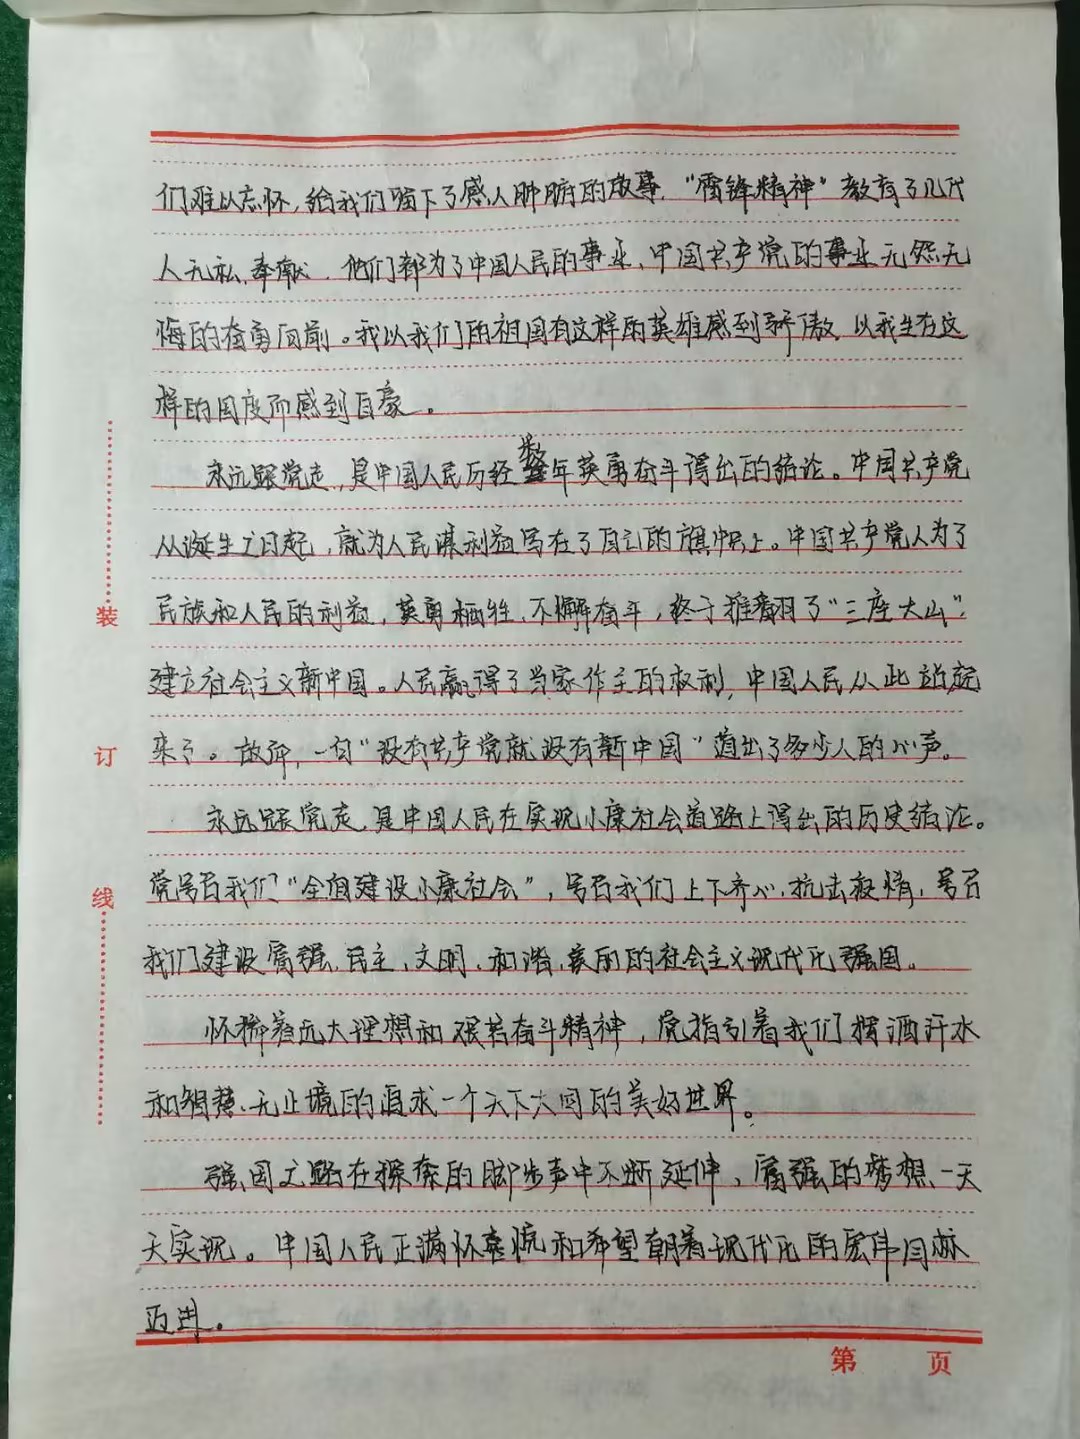 们难以忘怀,给我们留下了感人肺腑的故事,“雷锋精神”教育了几代
人无私奉献,他们都为了中国人民的事业、中国共产党的事业无怨无
悔的奋勇向前。我以我们的祖国有这样的英雄感到骄傲,以我生在这
样的国度而感到自豪。
永远跟党走,是中国人民历经数年英勇奋斗得出的结论。中国共产党
从诞生之日起,就为人民谋利益写在了自己的旗帜上。中国共产党人为了
民族和人民的利益,英勇牺牲,不懈奋斗,终于推翻了“三座大山”,
建立社会主义新中国。人民赢得了当家作主的权利,中国人民从此站起
来了。故而,一句“没有共产党就没有新中国”道出了多少人的心声。
永远跟党走,是中国人民在实现小康社会道路上得出的历史结论。
党号召我们“全面建设小康社会”,号召我们上下齐心,抗击疫情,号召
我们建设富强、民主、文明、和谐、美丽的社会主义现代化强国。
怀揣着远大理想和艰苦奋斗精神,党指引着我们挥洒汗水
和智慧、无止境的追求一个天下大同的美好世界。
强国之路在探索的脚步声中不断延伸,富强的梦想一天
天实现。中国人民正满怀喜悦和希望朝着现代化的宏伟目标
迈进。
装
订
线
第 页